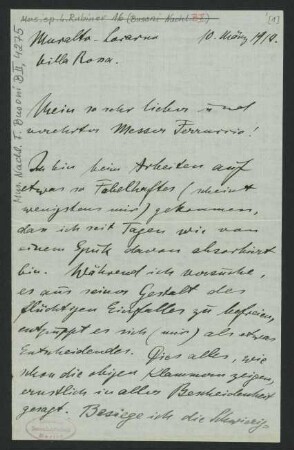 Mus. ep. L. Rubiner 16 (Busoni-Nachl. B II) [1]
Mus. Nachl. F. Busoni B II, 4275
Muralto-Locarno 10. März 1918.
Villa Rossa.
Mein so sehr lieber und
verehrter Messer Ferruccio!
Ich bin beim Arbeiten auf
etwas so Fabelhaftes (scheint
wenigstens mir) gekommen,
das ich seit Tagen wie von
einem Spuk davon absorbiert
bin. Während ich versuche,
es aus seiner Gestalt des
flüchtigen Einfalles zu befreien,
entpuppt es sich (mir) als etwas
Entscheidendes. Dies alles, wie
schon die obigen Klammern zeigen,
ernstlich in aller Bescheidenheit
gesagt. Besiege ich die Schwierig-